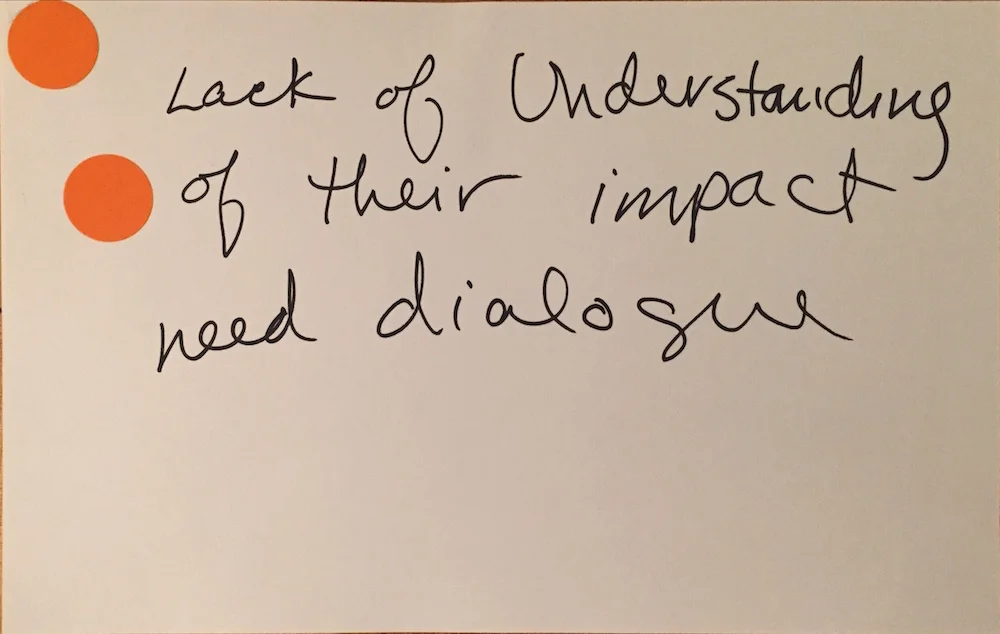 Lack of Understanding
of their impact
need dialogue